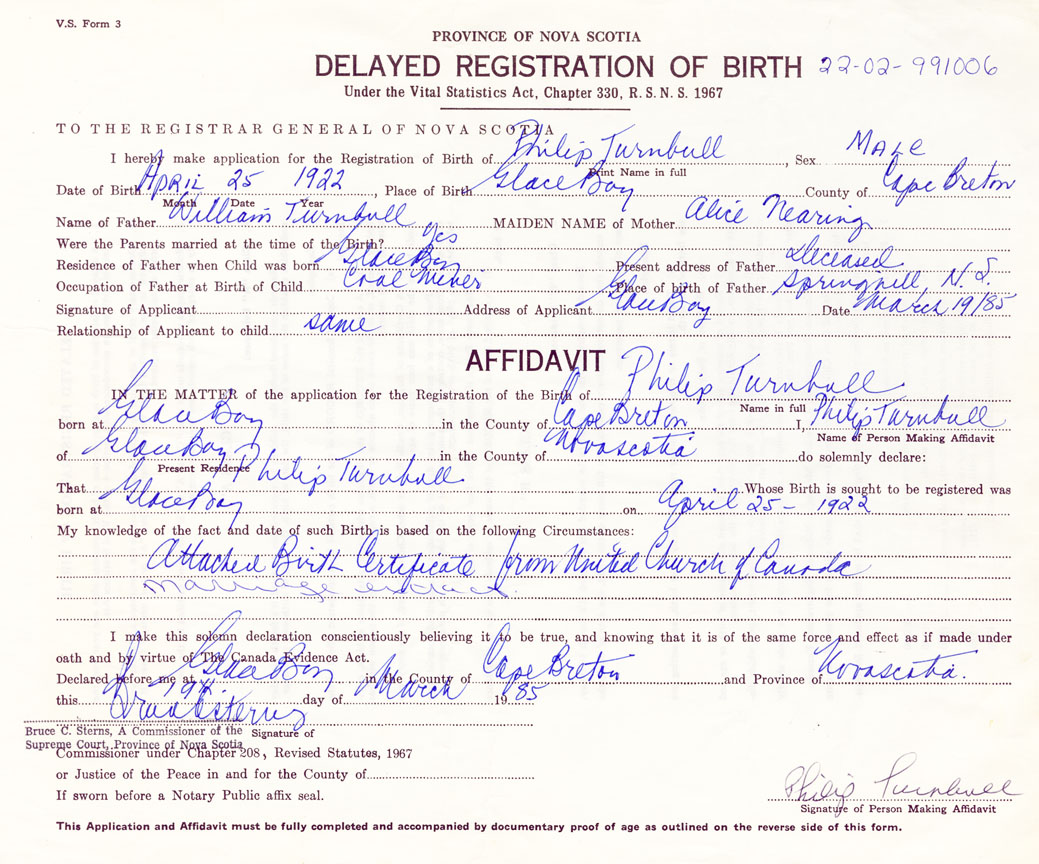 V.S. Form 3
PROVINCE OF NOVA SCOTIA
DELAYED REGISTRATION OF BIRTH 22-02-991006
Under the Vital Statistics Act, Chapter 330, R.S.N.S. 1967
TO THE REGISTRAR GENERAL OF NOVA SCOTIA
I hereby make application for the Registration of Birth of Philip Turnbull, Sex Male
Print Name in full
Date of Birth April 25 1922, Place of Birth Glace Bay County of Cape Breton
Month Date Year
Name of Father William Turnbull MAIDEN NAME of Mother Alice Nearing
Were the Parents married at the time of the Birth? yes
Residence of Father when Child was born Glace Bay Present address of Father Deceased
Occupation of Father at Birth of Child Coal Miner Place of birth of Father Springhill, N.S.
Signature of Applicant Address of Applicant Glace Bay Date March 19/85
Relationship of Applicant to child same
AFFIDAVIT
IN THE MATTER of the application for the Registration of the Birth of Philip Turnbull
Name in full
born at Glace Bay in the County of Cape Breton I, Philip Turnbull
Name of Person Making Affidavit
of Glace Bay in the County of Novascotia do solemnly declare:
Present Residence
That Philip Turnbull Whose Birth is sought to be registered was
born at Glace Bay on April 25 - 1922
My knowledge of the fact and date of such Birth is based on the following Circumstances:
Attached Birth Certificate from United Church of Canada
marriage extract
I make this solemn declaration conscientiously believing it to be true, and knowing that it is of the same force and effect as if made under
oath and by virtue of The Canada Evidence Act.
Declared before me at Glace Bay in the County of Cape Breton and Province of Novascotia.
this 19th day of March 1985
Bruce C. Sterns, A Commissioner of the
Signature of
Supreme Court, Province of Nova Scotia
Commissioner under Chapter 208, Revised Statutes, 1967
or Justice of the Peace in and for the County of
If sworn before a Notary Public affix seal.
Philip Turnbull
Signature of Person Making Affidavit
This Application and Affidavit must be fully completed and accompanied by documentary proof of age as outlined on the reverse side of this form.